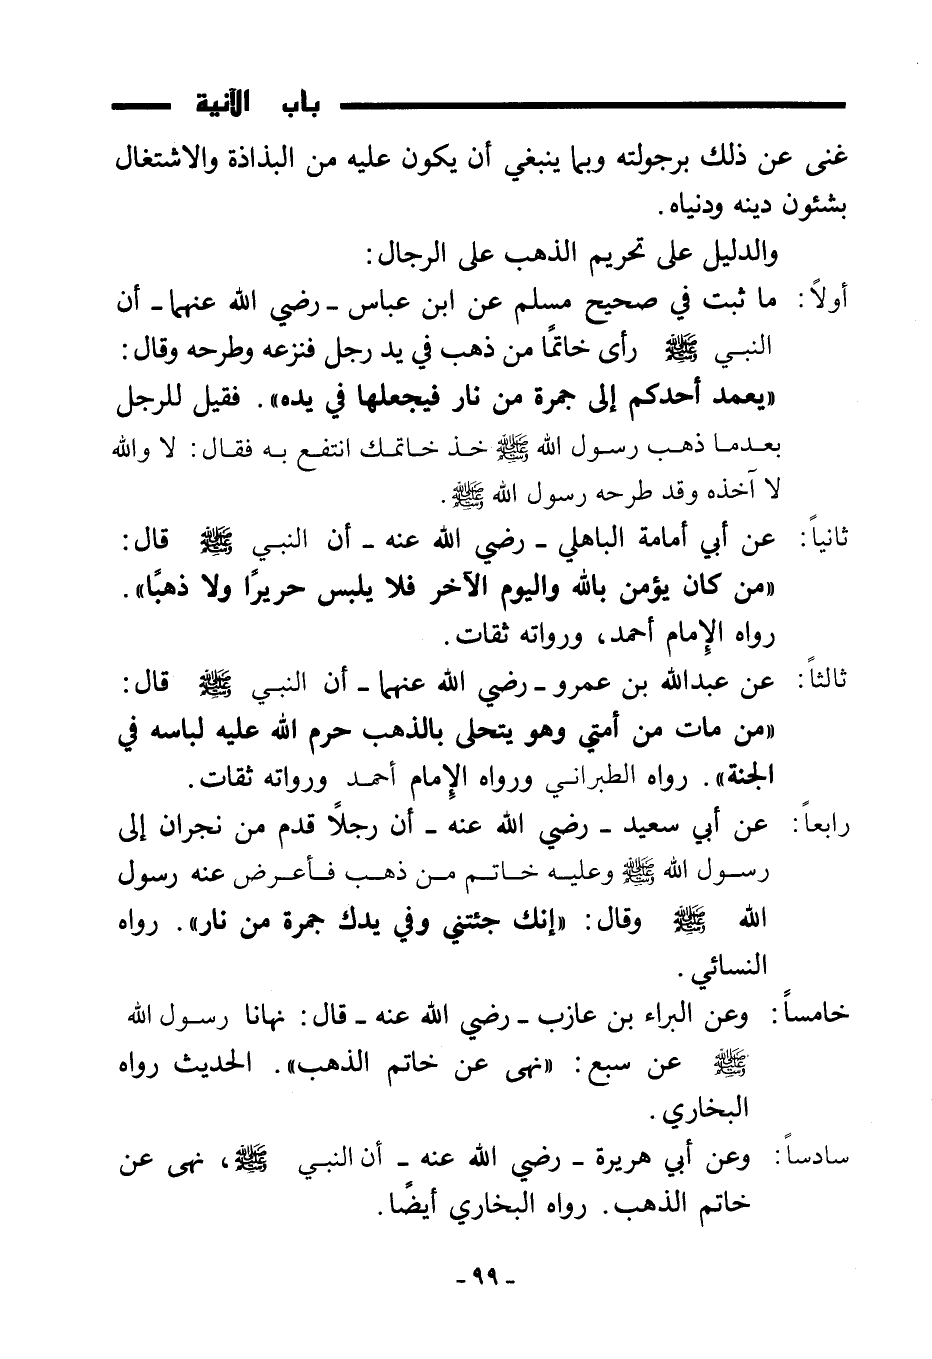 باب الآنية
غنى عن ذلك برجولته وبما ينبغي أن يكون عليه من البذاذة والاشتغال
بشئون دينه ودنياه .
والدليل على تحريم الذهب على الرجال :
أولاً : ما ثبت في صحيح مسلم عن ابن عباس ـ رضي الله عنهما ـ أن
النبي ﷺ رأى خاتمًا من ذهب في يد رجل فنزعه وطرحه وقال :
«يعمد أحدكم إلى جمرة من نار فيجعلها في يده» . فقيل للرجل
بعدما ذهب رسول الله ﷺ خذ خاتمك انتفع به فقال : لا والله
لا آخذه وقد طرحه رسول الله ﷺ .
ثانياً : عن أبي أمامة الباهلي ـ رضي الله عنه ـ أن النبي ﷺ قال :
«من كان يؤمن بالله واليوم الآخر فلا يلبس حريرًا ولا ذهبًا» .
رواه الإمام أحمد ، ورواته ثقات .
ثالثاً : عن عبدالله بن عمرو ـ رضي الله عنهما ـ أن النبي ﷺ قال :
«من مات من أمتي وهو يتحلى بالذهب حرم الله عليه لباسه في
الجنة» . رواه الطبراني ورواه الإمام أحمد ورواته ثقات .
رابعاً : عن أبي سعيد ـ رضي الله عنه ـ أن رجلاً قدم من نجران إلى
رسول الله ﷺ وعليه خاتم من ذهب فأعرض عنه رسول
الله ﷺ وقال : «إنك جئتني وفي يدك جمرة من نار» . رواه
النسائي .
خامساً : وعن البراء بن عازب ـ رضي الله عنه ـ قال : نهانا رسول الله
ﷺ عن سبع : «نهى عن خاتم الذهب» . الحديث رواه
البخاري .
سادساً : وعن أبي هريرة ـ رضي الله عنه ـ أن النبي ﷺ ، نهى عن
خاتم الذهب . رواه البخاري أيضًا .
ـ ٩٩ ـ